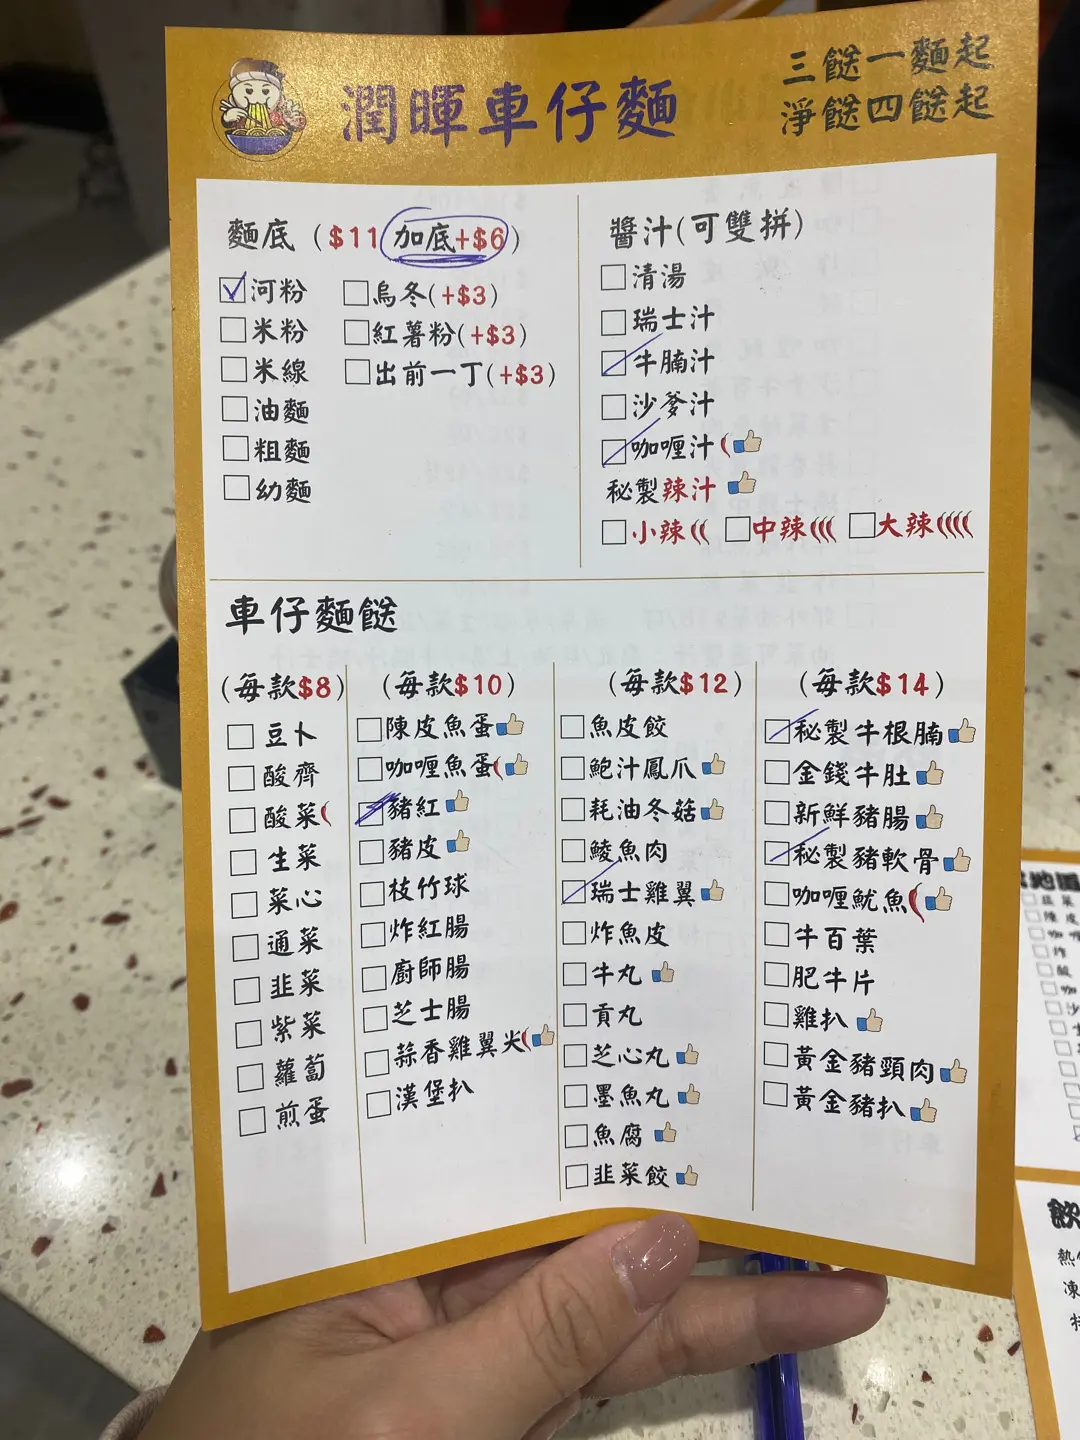 潤暉車仔麵
三餸一麵起
淨餸四餸起
麵底 ($11 加底+$6)
河粉
米粉
米線
油麵
粗麵
幼麵
烏冬(+$3)
紅薯粉(+$3)
出前一丁(+$3)
醬汁(可雙拼)
清湯
瑞士汁
牛腩汁
沙爹汁
咖喱汁
秘製辣汁
小辣 中辣 大辣
車仔麵餸
(每款$8)
豆卜
酸齊
酸菜
生菜
菜心
通菜
韭菜
紫菜
蘿蔔
煎蛋
(每款$10)
陳皮魚蛋
咖喱魚蛋
豬紅
豬皮
枝竹球
炸紅腸
廚師腸
芝士腸
蒜香雞翼尖
漢堡扒
(每款$12)
魚皮餃
鮑汁鳳爪
耗油冬菇
鯪魚肉
瑞士雞翼
炸魚皮
牛丸
貢丸
芝心丸
墨魚丸
魚腐
韭菜餃
(每款$14)
秘製牛根腩
金錢牛肚
新鮮豬腸
秘製豬軟骨
咖喱魷魚
牛百葉
肥牛片
雞扒
黃金豬頸肉
黃金豬扒